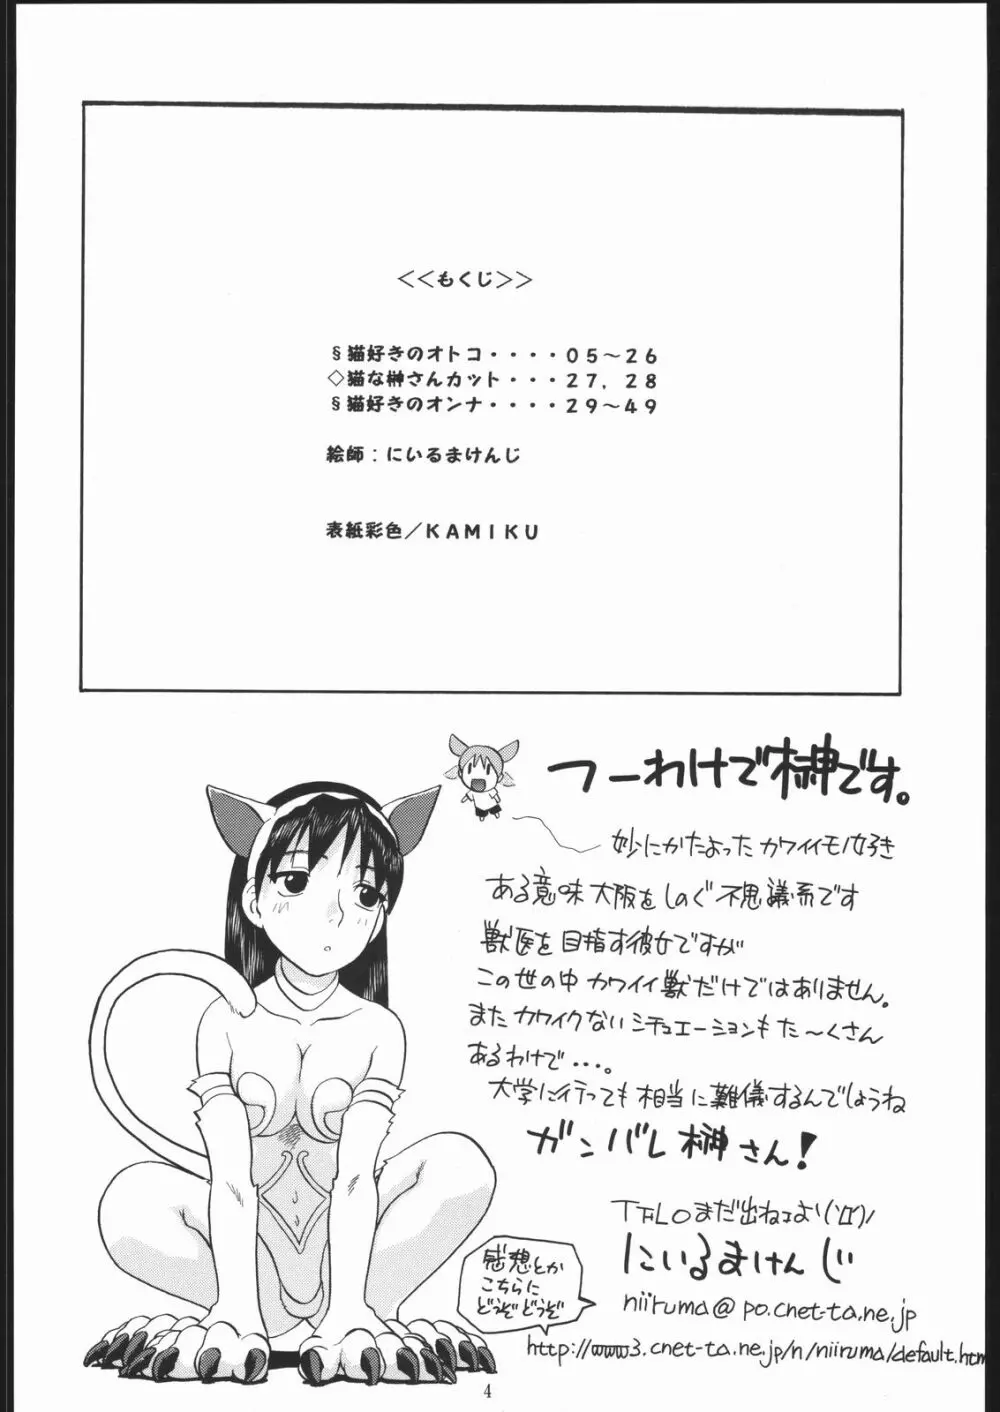 <<もくじ>>
§猫好きのオトコ・・・・05～26
◇猫な榊さんカット・・・27,28
§猫好きのオンナ・・・・29～49
絵師：にいるまけんじ
表紙彩色／KAMIKU
つーわけで榊です。
妙にかたよったカワイイモノ好き
ある意味大阪をしのぐ不思議系です
獣医を目指す彼女ですが
この世の中カワイイ獣だけではありません。
またカワイクないシチュエーションもた～くさん
あるわけで・・・。
大学に行っても相当に難儀するんでしょうね
ガンバレ榊さん!
まだ出ねェよ
にいるまけんじ
感想とか
こちらに
どうぞどうぞ
niiruma@po.cnet-ta.ne.jp
http://www3.cnet-ta.ne.jp/n/niiruma/default.htm
4